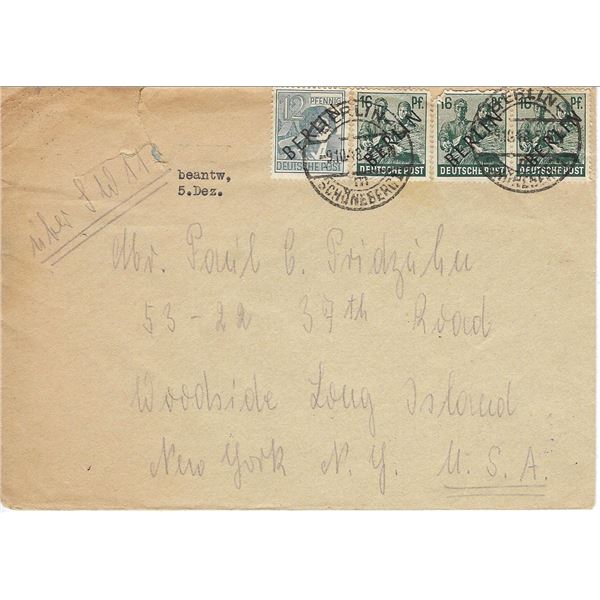 12 PFENNIG 16 Pf. 16 Pf. 16 Pf.
BERLIN BERLIN BERLIN BERLIN
DEUTSCHE POST DEUTSCHE POST DEUTSCHE POST DEUTSCHE POST
BERLIN SCHÖNEBERG BERLIN
über
beantw,
5.Dez.
Mr. Paul C. Pridzuhn
53-22 37th Road
Woodside Long Island
New York N.Y. U.S.A.